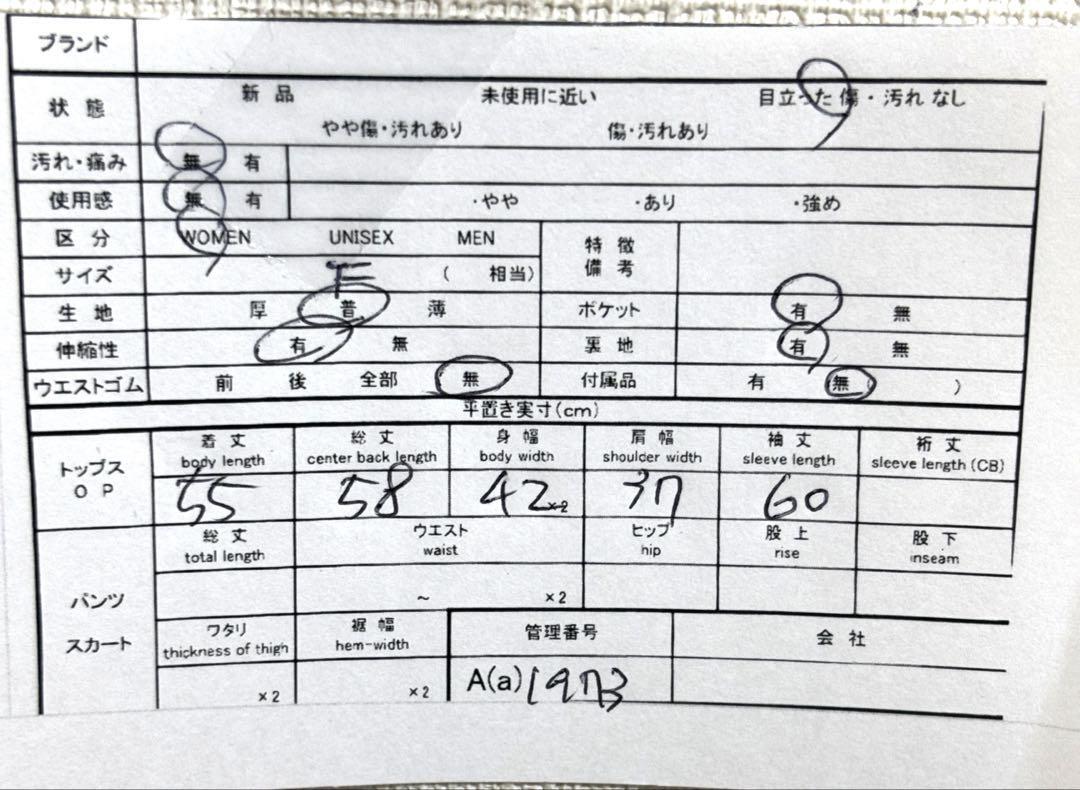 ブランド
状態 新品 未使用に近い 目立った傷・汚れなし
やや傷・汚れあり 傷・汚れあり
汚れ・痛み 無 有
使用感 無 有 ・やや ・あり ・強め
区分 WOMEN UNISEX MEN 特徴備考
サイズ F ( 相当)
生地 厚 普 薄 ポケット 有 無
伸縮性 有 無 裏地 有 無
ウエストゴム 前 後 全部 無 付属品 有 無 )
平置き実寸(cm)
トップス OP 着丈 総丈 身幅 肩幅 袖丈 裄丈
body length center back length body width shoulder width sleeve length sleeve length (CB)
55 58 42 ×2 37 60
総丈 ウエスト ヒップ 股上 股下
total length waist hip rise inseam
パンツ ~ ×2
スカート ワタリ 裾幅 管理番号 会社
thickness of thigh hem-width
×2 ×2 A(a) 1973